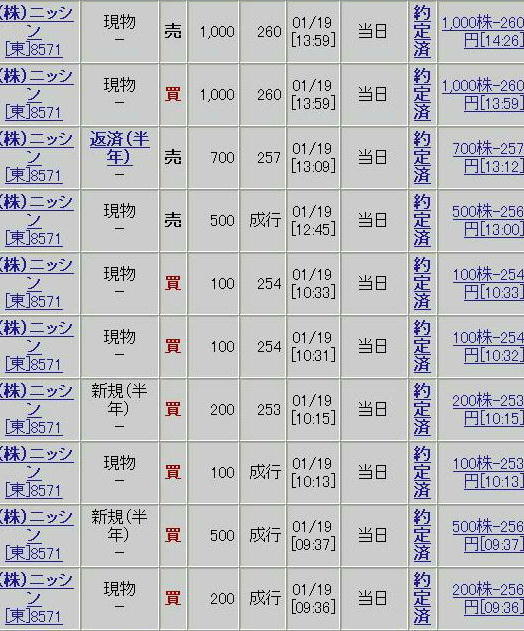 (株)ニッシ 現物 売 1,000 260 01/19 当日 約定済 1,000株-260
ン – [13:59] 円[14:26]
[東]8571
(株)ニッシ 現物 買 1,000 260 01/19 当日 約定済 1,000株-260
ン – [13:59] 円[13:59]
[東]8571
(株)ニッシ 返済(半 売 700 257 01/19 当日 約定済 700株-257
ン 年) [13:09] 円[13:12]
[東]8571 –
(株)ニッシ 現物 売 500 成行 01/19 当日 約定済 500株-256
ン – [12:45] 円[13:00]
[東]8571
(株)ニッシ 現物 買 100 254 01/19 当日 約定済 100株-254
ン – [10:33] 円[10:33]
[東]8571
(株)ニッシ 現物 買 100 254 01/19 当日 約定済 100株-254
ン – [10:31] 円[10:32]
[東]8571
(株)ニッシ 新規(半 買 200 253 01/19 当日 約定済 200株-253
ン 年) [10:15] 円[10:15]
[東]8571 –
(株)ニッシ 現物 買 100 成行 01/19 当日 約定済 100株-253
ン – [10:13] 円[10:13]
[東]8571
(株)ニッシ 新規(半 買 500 成行 01/19 当日 約定済 500株-256
ン 年) [09:37] 円[09:37]
[東]8571 –
(株)ニッシ 現物 買 200 成行 01/19 当日 約定済 200株-256
ン – [09:36] 円[09:36]
[東]8571